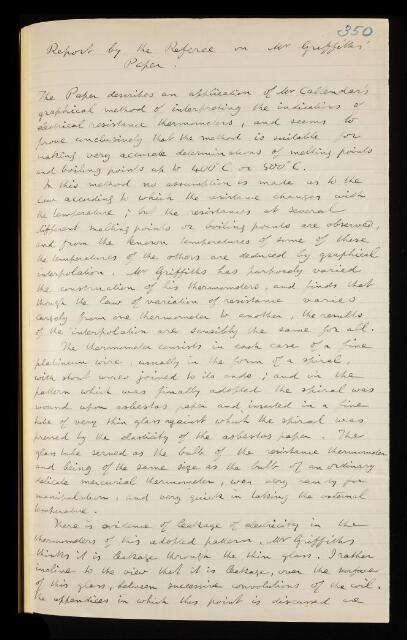 350
Report by the Referee on Mr Griffiths'
Paper.
The Paper describes an application of Mr Callendar's
graphical method of interpreting the indications of
electrical resistance thermometers, and seems to
prove conclusively that the method is suitable for
making very accurate determinations of melting points
and boiling points up to 400°C or 500°C.
In this method no assumption is made as to the
law according to which the resistance changes with
the temperature; but the resistances at several
different melting points or boiling points are observed,
and from the known temperatures of some of these
the temperatures of the others are deduced by graphical
interpolation. Mr Griffiths has purposely varied
the construction of his thermometers, and finds that
though the law of variation of resistance varies
largely from one thermometer to another, the results
of the interpolation are sensibly the same for all.
The thermometer consists in each case of a fine
platinum wire, usually in the form of a spiral,
with stout wires joined to its ends; and in the
pattern which was finally adopted the spiral was
wound upon asbestos paper and inserted in a fine
tube of very thin glass against which the spiral was
pressed by the elasticity of the asbestos paper. The
glass tube served as the bulb of the resistance thermometer
and being of the same size as the bulb of an ordinary
delicate mercurial thermometer, was very handy for
manipulation, and very quick in taking the external
temperature.
There is evidence of leakage of electricity in the
thermometers of this adopted pattern. Mr Griffiths
thinks it is leakage through the thin glass. I rather
incline to the view that it is leakage, over the surface
of this glass, between successive convolutions of the coil.
The appendices in which this point is discussed are